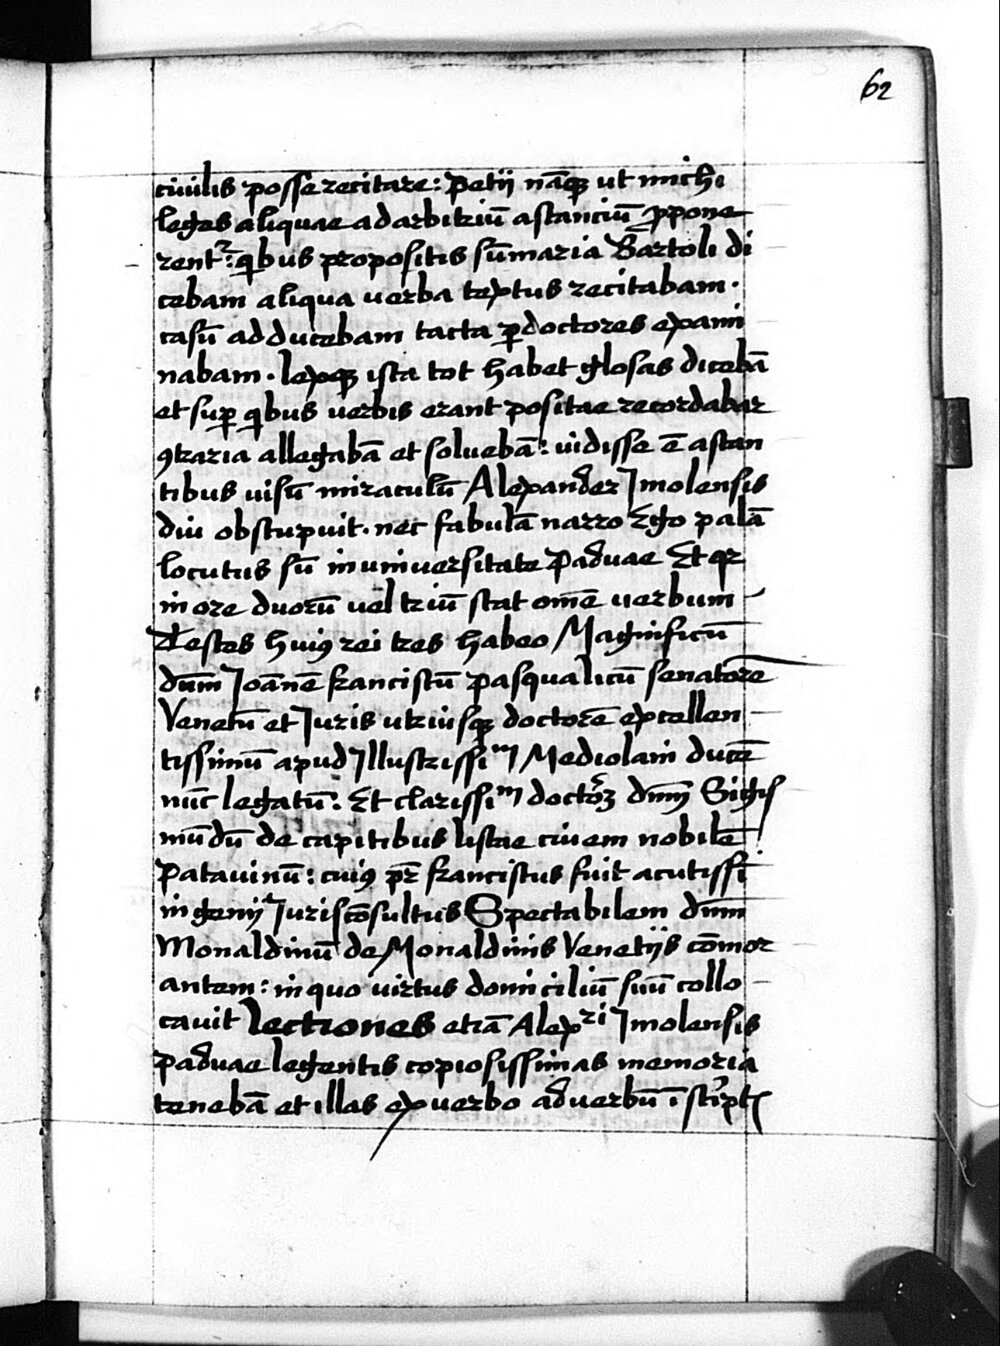 62
ciuilis posse recitare: Petij nãqꝫ ut michi
leges aliquae ad arbitriũ astanciũ ꝓpone
rentᷣ: qͥbus propositis sũmaria Bartoli di
cebam aliqua uerba textus recitabam.
casũ adducebam tacta ꝑ doctores exami
nabam. lexqꝫ ista tot habet glosas dicebã
et suꝑ qͥbus uerbis erant positae recordabar
ꝯtraria allegabã et soluebã: uidisse ẽ astan
tibus uisũ miraculũ Alexander Imolensis
diu obstupuit. nec fabulã narro Ego palã
locutus sũ in uniuersitate Paduae Et qꝛ
in ore duorũ uel triũ stat omẽ uerbum
Testes huiꝯ rei tres habeo Magnificũ
dũm Joãnẽ franciscũ pasqualicũ senatorẽ
Venetũ et Juris utriusqꝫ doctorẽ excellen
tissimũ apud Illustrissiᵐ Mediolani ducẽ
nũc legatũ: Et clarissiᵐ doctoꝝ dñm Sigis
mũdũ de capitibus listae ciuem nobilẽ
Patauinũ: cuiꝯ pr̃ franciscus fuit acutissi
ingenij Juriscõsultus Spectabilem dñm
Monaldinũ de Monaldinis Venetijs cõmor
antem: in quo uirtus domiciliũ suũ collo
cauit lectiones etiã Alexʳⁱ Imolensis
paduae legentis copiosissimas memoria
tenebã et illas ex uerbo ad uerbũ ĩ scͥptis